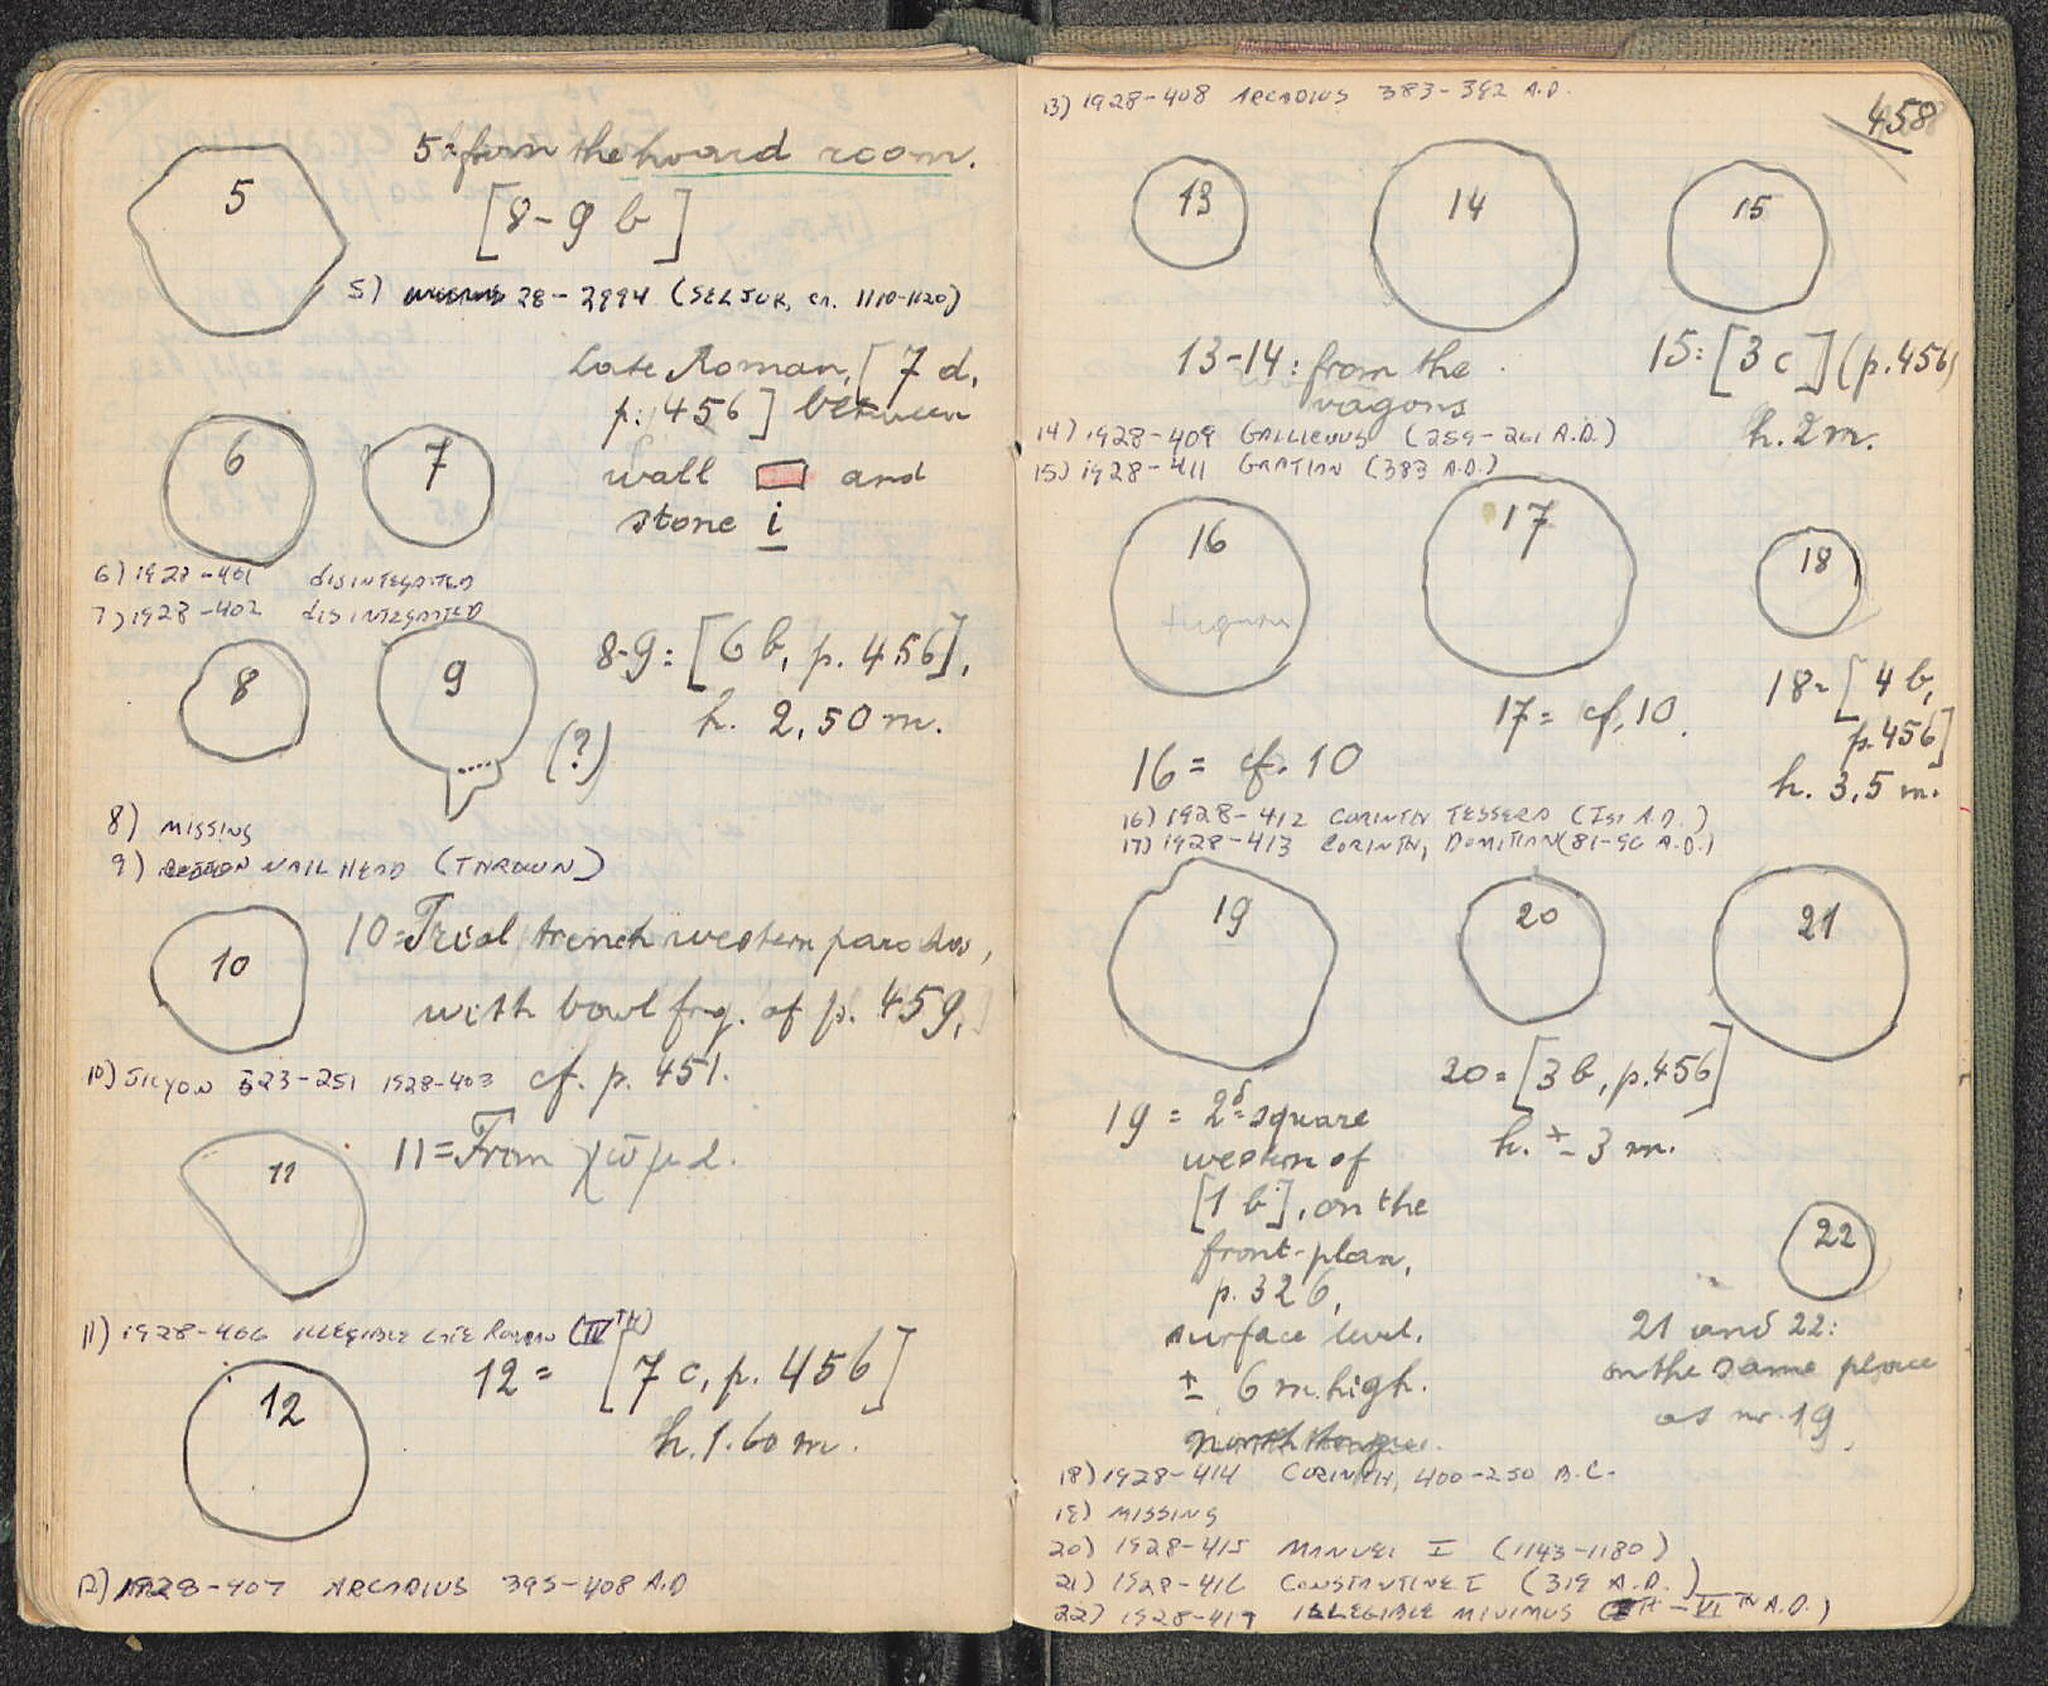 5
5= from the hoard room.
[8-9 b]
5) 28-2994 (SELJUK, CA. 1110-1120)
Late Roman, [7 d,
p. 456] between
wall and
stone i
6
7
6) 1928-401 DISINTEGRATED
7) 1928-402 DISINTEGRATED
8
9
(?)
8-9: [6 b, p. 456],
h. 2,50 m.
8) MISSING
9) NAIL HEAD (THROWN)
10
10= Trial trench western parodos,
with bowl frg. of p. 459,
cf. p. 451.
10) SICYON 323-251 1928-403
11
11= From χῶμα.
11) 1928-406 ILLEGIBLE LATE ROMAN (IVTH)
12
12= [7 c, p. 456]
h. 1.60 m.
12) 1928-407 ARCADIUS 395-408 A.D
458
13) 1928-408 ARCADIUS 383-392 A.D.
13
14
15
13-14: from the
vagons
15: [3 c] (p. 456)
h. 2 m.
14) 1928-409 GALLIENUS (259-261 A.D.)
15) 1928-411 GRATIAN (383 A.D.)
16
17
18
16= cf. 10
17= cf. 10.
18= [4 b,
p. 456]
h. 3,5 m.
16) 1928-412 CORINTH TESSERA (IST A.D.)
17) 1928-413 CORINTH, DOMITIAN (81-96 A.D.)
19
20
21
19 = 2d square
western of
[1 b], on the
front-plan,
p. 326,
surface level.
± 6 m. high.
20= [3 b, p. 456]
h. ± 3 m.
22
21 and 22:
on the same place
as nr. 19.
18) 1928-414 CORINTH, 400-250 B.C.
19) MISSING
20) 1928-415 MANUEL I (1143-1180)
21) 1928-416 CONSTANTINE I (319 A.D.)
22) 1928-417 ILLEGIBLE MINIMUS - VITH A.D.)